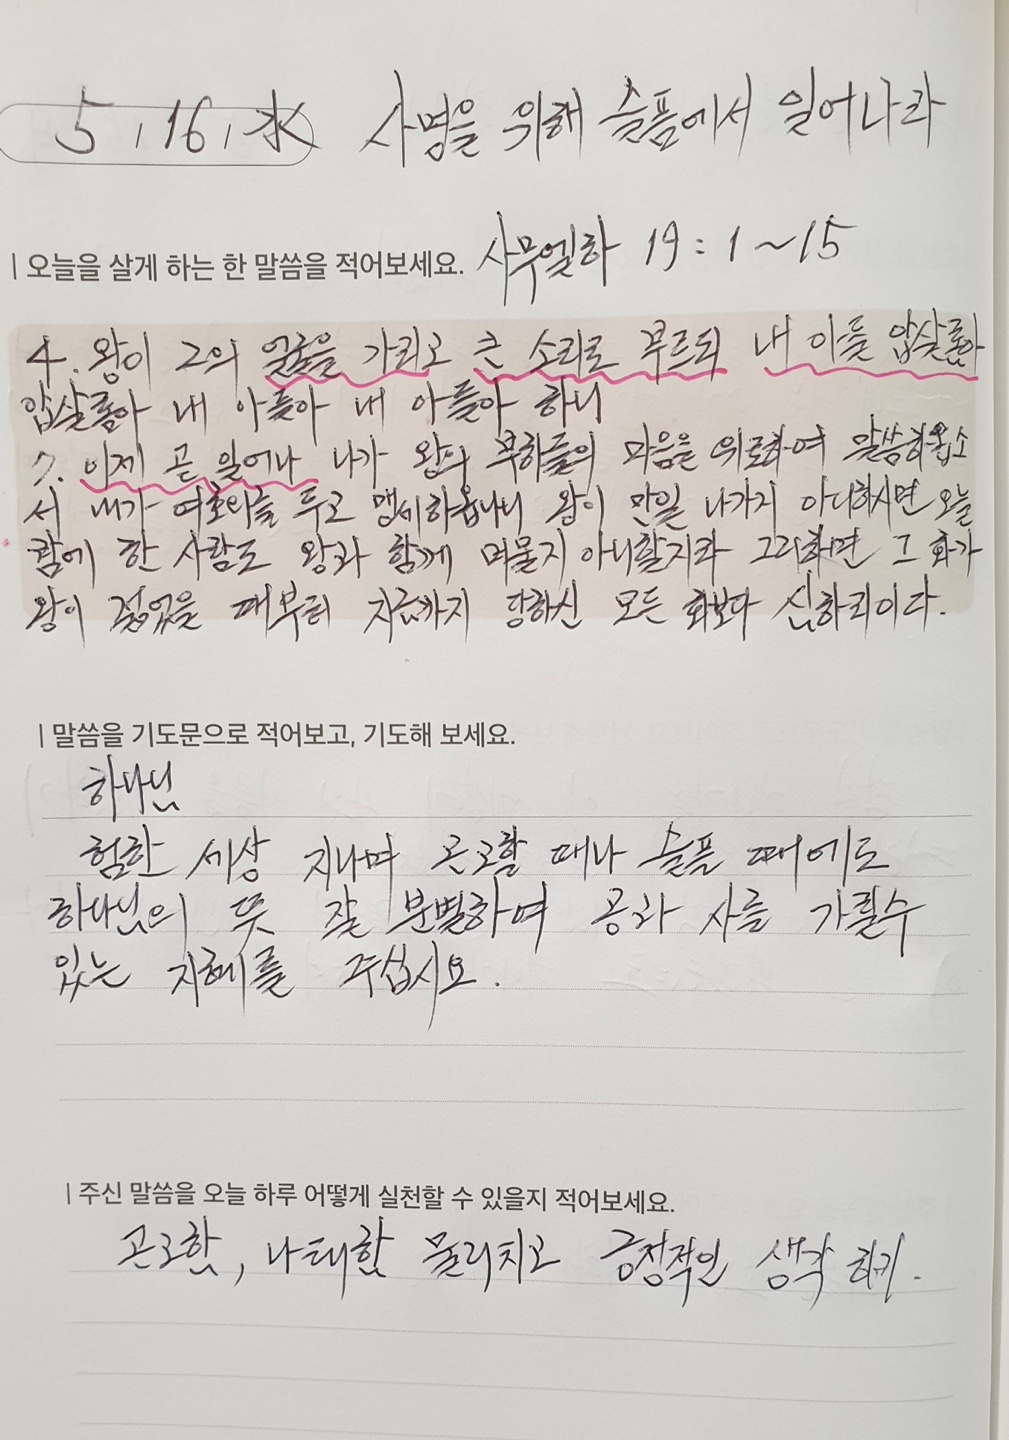 5, 16, 水 사명을 위해 슬픔에서 일어나라
| 오늘을 살게 하는 한 말씀을 적어보세요. 사무엘하 19 : 1 ~ 15
4. 왕이 그의 얼굴을 가리고 큰 소리로 부르되 내 아들 압살롬아
압살롬아 내 아들아 내 아들아 하니
7. 이제 곧 일어나 나가 왕의 부하들의 마음을 위로하여 말씀하옵소
서 내가 여호와를 두고 맹세하옵나니 왕이 만일 나가지 아니하시면 오늘
밤에 한 사람도 왕과 함께 머물지 아니할지라 그리하면 그 화가
왕이 젊었을 때부터 지금까지 당하신 모든 화보다 심하리이다.
| 말씀을 기도문으로 적어보고, 기도해 보세요.
하나님
험한 세상 지나며 곤고할 때나 슬플 때에도
하나님의 뜻 잘 분별하여 공과 사를 가릴수
있는 지혜를 주십시요.
| 주신 말씀을 오늘 하루 어떻게 실천할 수 있을지 적어보세요.
곤고함, 나태함 물리치고 긍정적인 생각 하기.